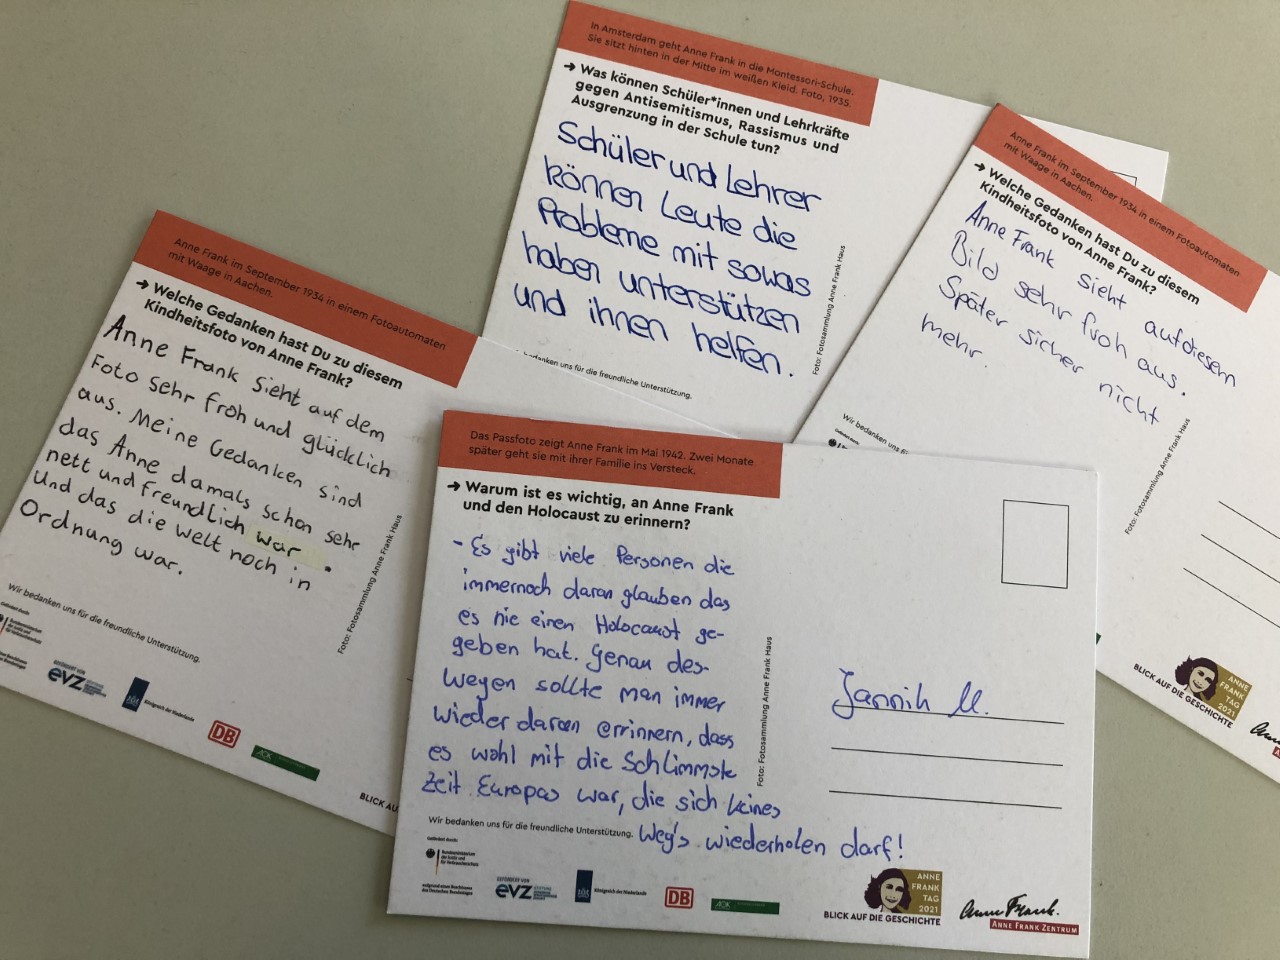 In Amsterdam geht Anne Frank in die Montessori-Schule.
Sie sitzt hinten in der Mitte im weißen Kleid. Foto, 1935.
→ Was können Schüler*innen und Lehrkräfte
gegen Antisemitismus, Rassismus und
Ausgrenzung in der Schule tun?
Schüler und Lehrer
können Leute die
Probleme mit sowas
haben unterstützen
und ihnen helfen.
bedanken uns für die freundliche Unterstützung.
Foto: Fotosammlung Anne Frank Haus
Anne Frank im September 1934 in einem Fotoautomaten
mit Waage in Aachen.
→ Welche Gedanken hast Du zu diesem
Kindheitsfoto von Anne Frank?
Anne Frank sieht auf diesem
Bild sehr froh aus.
Später sicher nicht
mehr.
Wir bedanken uns
Foto: Fotosammlung Anne Frank Haus
ANNE
FRANK
TAG
2021
BLICK AUF DIE GESCHICHTE
Anne Frank im September 1934 in einem Fotoautomaten
mit Waage in Aachen.
→ Welche Gedanken hast Du zu diesem
Kindheitsfoto von Anne Frank?
Anne Frank sieht auf dem
Foto sehr froh und glücklich
aus. Meine Gedanken sind
das Anne damals schon sehr
nett und freundlich war.
Und das die Welt noch in
Ordnung war.
Foto: Fotosammlung Anne Frank Haus
Wir bedanken uns für die freundliche Unterstützung.
GEFÖRDERT VON
evz
Königreich der Niederlande
DB
ACK
BLICK AU
Das Passfoto zeigt Anne Frank im Mai 1942. Zwei Monate
später geht sie mit ihrer Familie ins Versteck.
→ Warum ist es wichtig, an Anne Frank
und den Holocaust zu erinnern?
- Es gibt viele Personen die
immernoch daran glauben das
es nie einen Holocaust ge-
geben hat. Genau des-
wegen sollte man immer
wieder daran errinnern, dass
es wohl mit die Schlimmste
Zeit Europas war, die sich keines
Weg's wiederholen darf!
Foto: Fotosammlung Anne Frank Haus
Jannik M.
Wir bedanken uns für die freundliche Unterstützung.
Gefördert durch:
Bundesministerium
der Justiz und
für Verbraucherschutz
aufgrund eines Beschlusses
des Deutschen Bundestages
GEFÖRDERT VON
evz
Königreich der Niederlande
DB
ACK
ANNE
FRANK
TAG
2021
BLICK AUF DIE GESCHICHTE
Anne Frank.
ANNE FRANK ZENTRUM